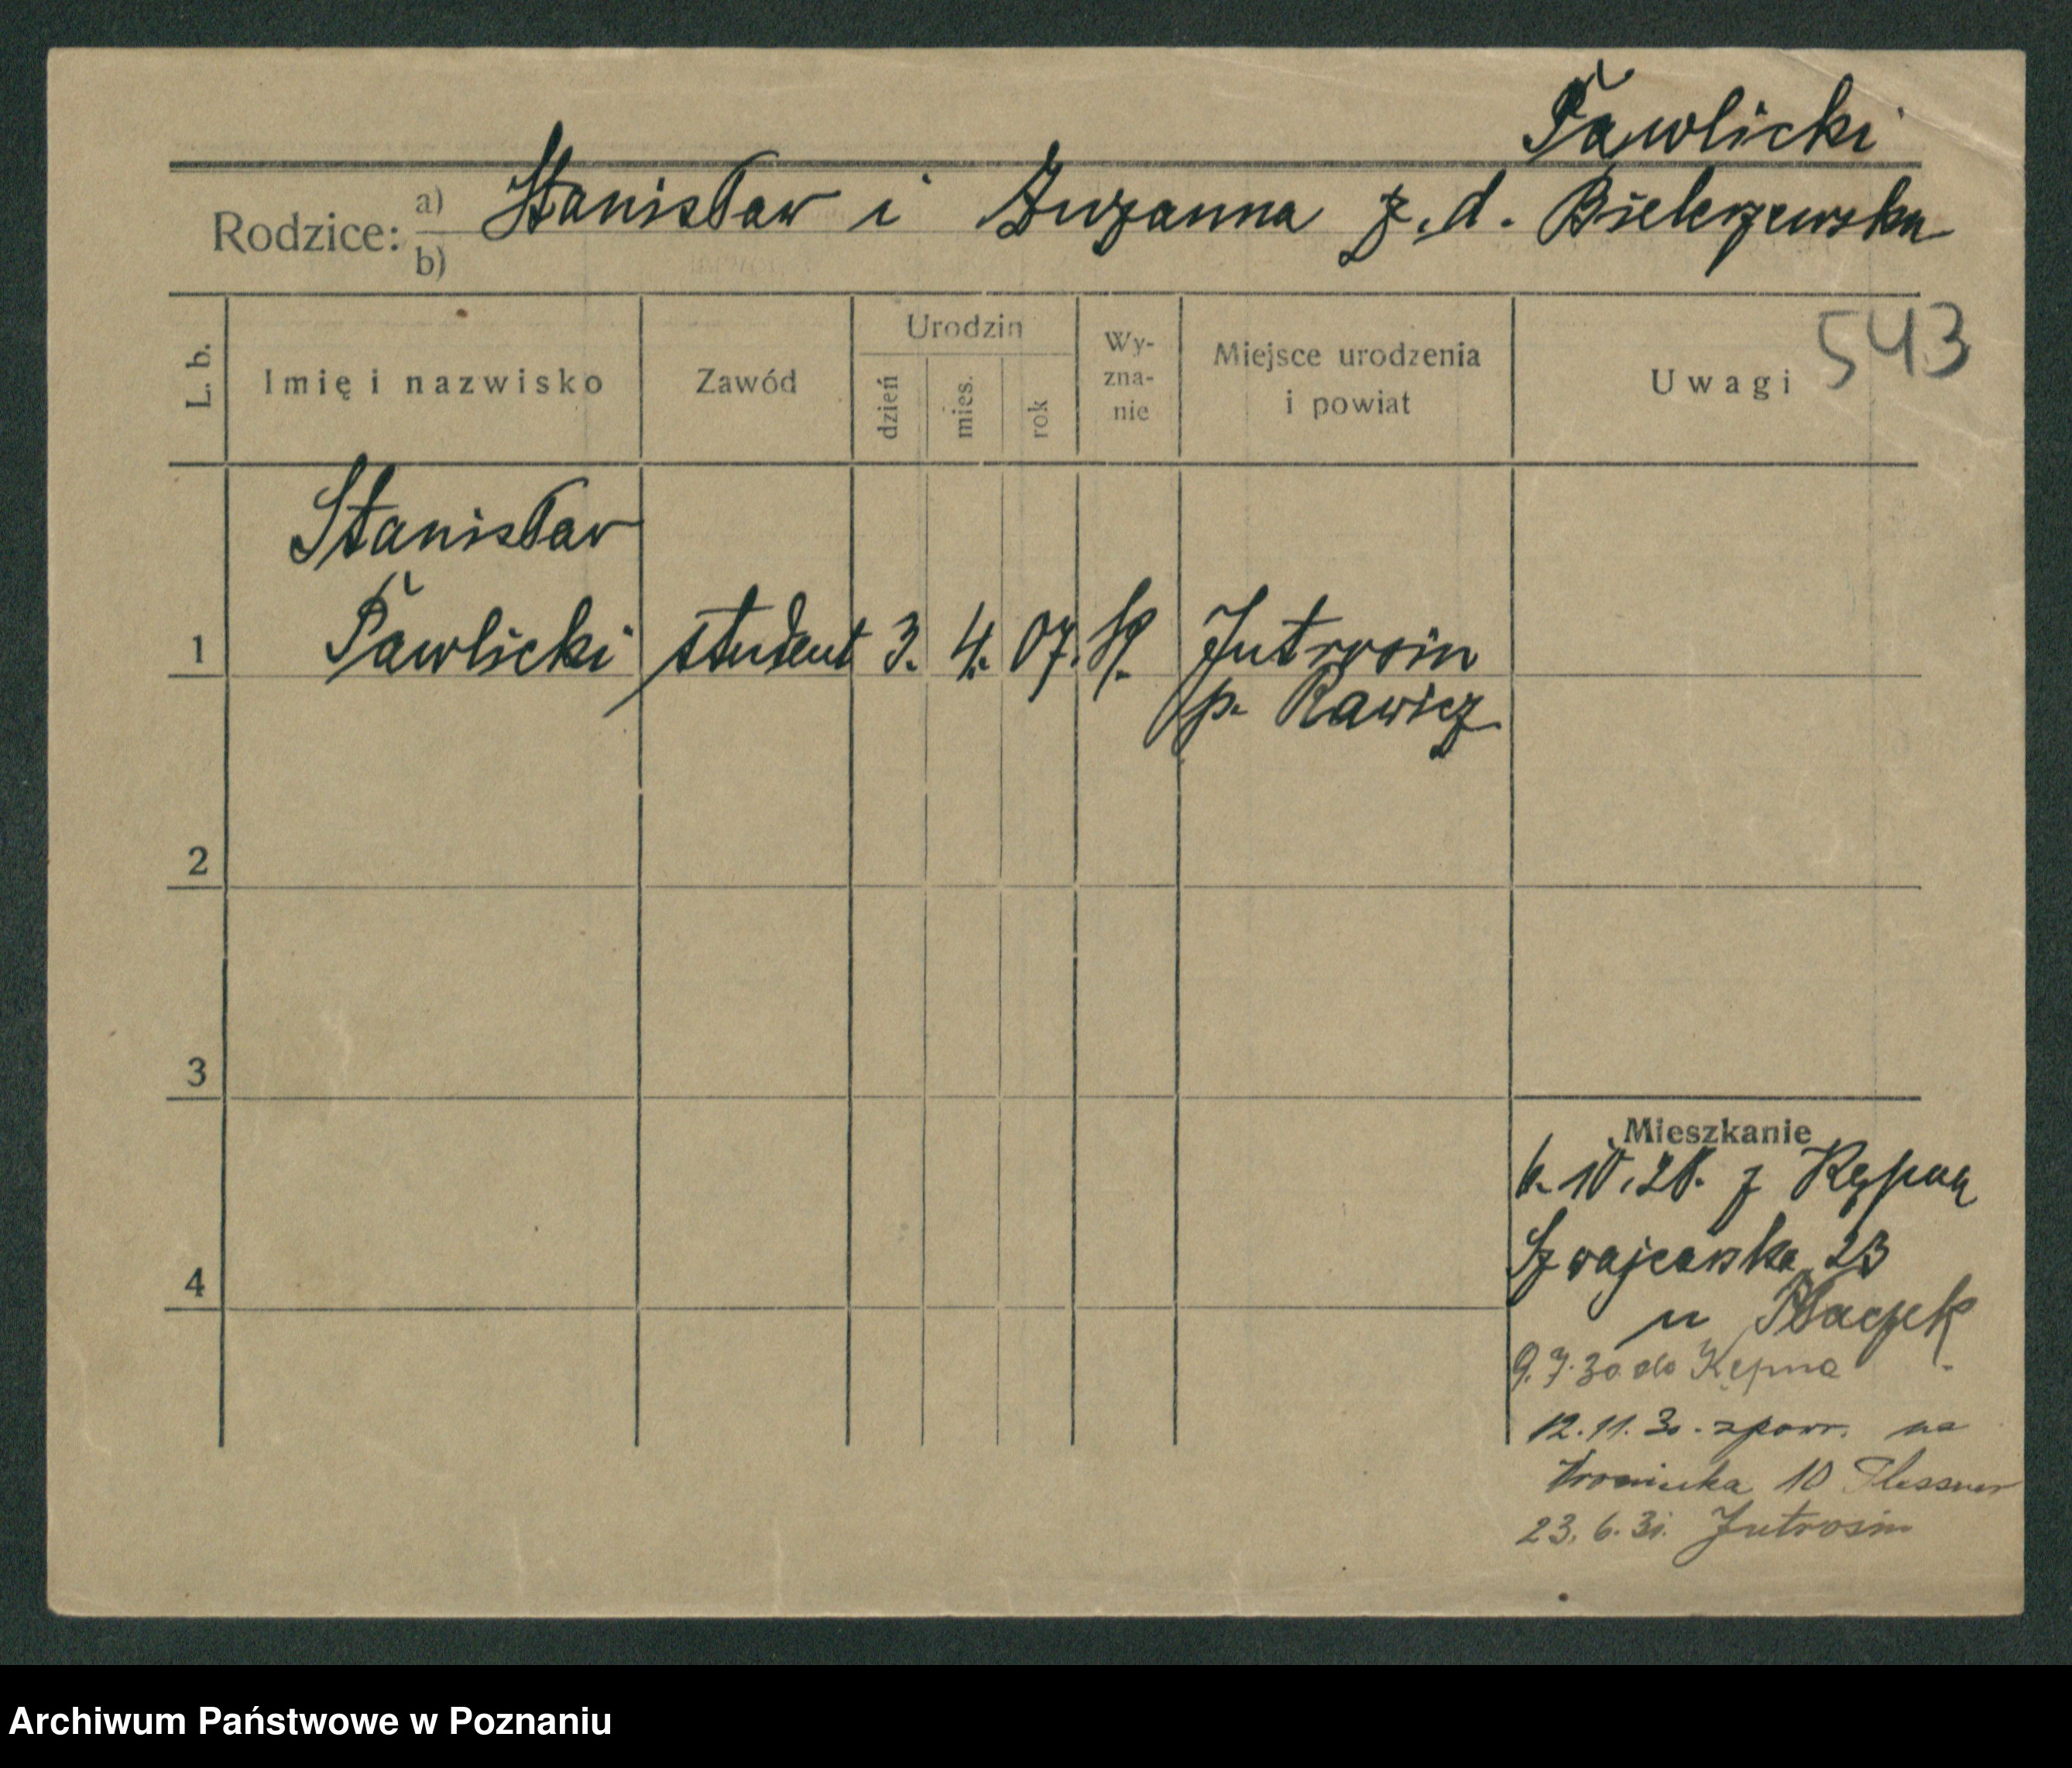 Pawlicki
Rodzice: a) Stanisław i Zuzanna z. d. Bielerzewska
b)
543
L. b. Imię i nazwisko Zawód Urodzin dzień mies. rok Wy-zna-nie Miejsce urodzenia i powiat Uwagi
Stanisław
1 Pawlicki student 3. 4. 07. Jutrosin
p. Rawicz
2
3
Mieszkanie
6. 10. 28. z Kępna
4 Szwajcarska 23
u Tłaczek
9. 7. 30 do Kępna
12. 11. 30. zpow. na
10 Plessner
23. 6. 31. Jutrosin
Archiwum Państwowe w Poznaniu